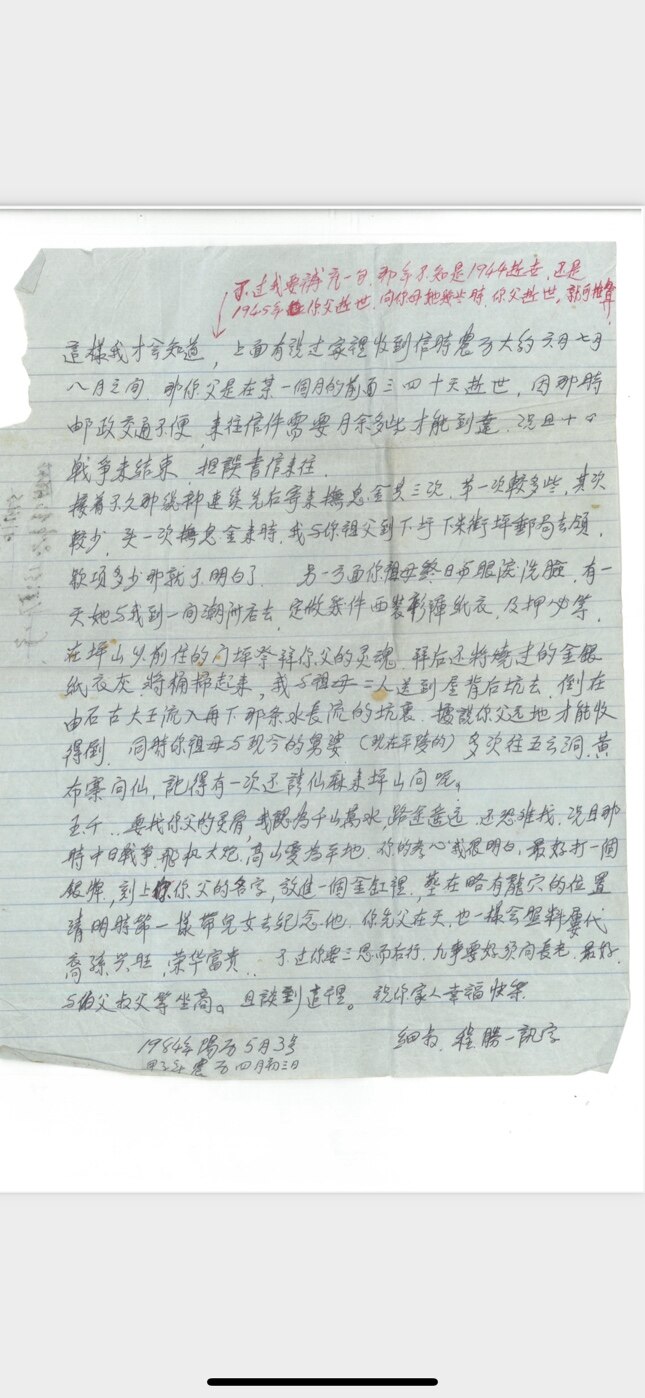 不过我要補充一句.那年不知是1944逝世,还是
1945年你父逝世.向你母她幾時.你父逝世,就可推算
這樣我才会知道,上面有説过家裡收到信時農历大約六月七月
八月之间.那你父是在某一個月的前面三四十天逝世,因那時
邮政交通不便,来往信件需要月余多些才能到達.况且中日
戦争未結束.担誤書信来往.
接着不久那級部連续先后寄来撫恤金共三次.第一次較多些,其次
較少.头一次撫恤金来時.我与你祖父到下圩下米街坪郵局去領,
欵项多少那就不明白了. 另一方面你祖母終日与眼淚洗臉.有一
天她与我到一间潮州店去,定做幾件西裝彩輝紙衣,及押必等,
在坪山以前住的门坪祭拜你父的灵魂.拜后还将燒过的金銀
纸衣灰.将桶掃起来,我与祖母二人送到屋背后坑去,倒在
由石古大王流入再下那条水長流的坑裏.據説你父远地才能收
得倒. 同時你祖母与现今的舅婆(现在平塝的)多次往五云洞.黄
布寨问仙,記得有一次还請仙蔴来坪山问呢。
至于..要找你父的灵骨,我認為千山萬水,路途遥远.还恐难找.况且那
時中日戦争飛机大炮,高山变為平地.你的孝心我很明白.最好打一個
銀牌,刻上你父的名字,放進一個金缸裡.塟在略有龍穴的位置
清明時節一樣帶兒女去纪念他.你先父在天,也一樣会照料屢代
裔孫兴旺,荣华富貴.. 不过你要三思而后行.凡事要好须问長老.最好
与伯父叔父等坐商。且談到這裡。祝你家人幸福快樂.
細叔 程勝一訊字
1984年陽历5月3号
甲子年農历四月初三日